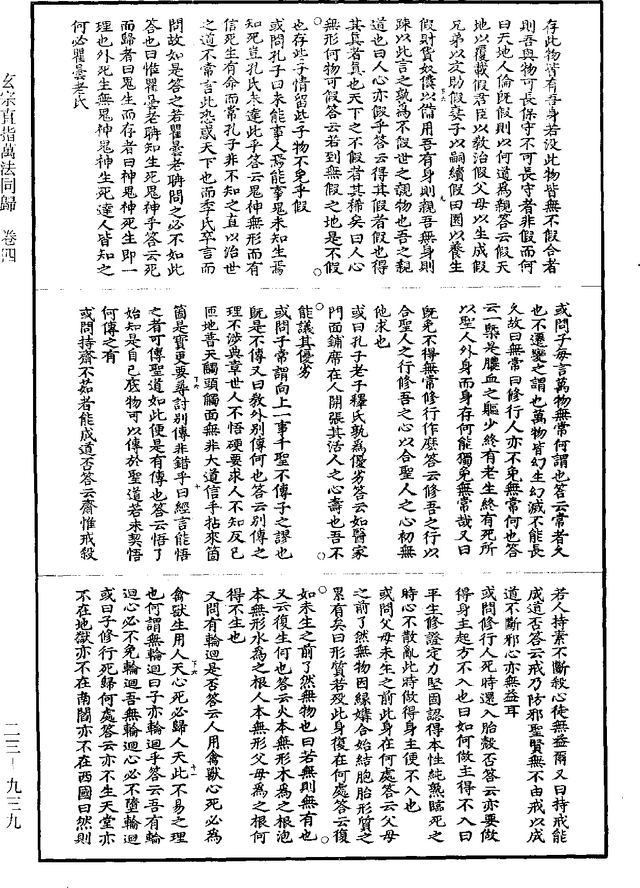 存此物皆有吾身若没此物皆無不假合者
則吾與物可長保守不可長守者非假而何
曰天地人倫既假則以何道為親答云假天
地以覆載假君臣以教治假父母以生成假
兄弟以交助假妻子以嗣續假田園以養生
假財貨奴僕以備用吾有身則親吾無身則
踈以此言之孰為不假世之親物也吾之親
道也曰人心亦假乎答云得其假者假也得
其真者真也天下之不假者其稀矣曰人心
無形何物可假答云若到無假之地是不假
也存此子情留此子物不免乎假
或問孔子曰未能事人焉能事鬼未知生焉
知死豈孔氏未達此乎答云鬼神無形而有
信死生有命而常孔子非不知之直以治世
之道不常言此恐惑天下也而季氏卒言而
問故如是答之若瞿曇老聃問之必不如此
答也曰惟瞿曇老聃知生死鬼神乎答云死
而歸者曰鬼生而存者曰神鬼神死生即一
理也外死生無鬼神鬼神生死達人皆知之
何必瞿曇老氏
或問子每言萬物無常何謂也答云常者久
也不遷變之謂也萬物皆幻生幻滅不能長
久故曰無常曰修行人亦不免無常何也答
云一槩是膿血之軀少終有老生終有死所
以聖人外身而身存何能獨免無常哉又曰
既免不得無常修行作麽答云修吾之行以
合聖人之行修吾之心以合聖人之心初無
他求也
或曰孔子老子釋氏孰為優劣答云如醫家
門面鋪席在人開張其活人之心壽也吾不
能議其優劣
或問子常謂向上一事千聖不傳子之謬也
既是不傳又曰教外別傳何也答云別傳之
理不涉典章世人不悟硬要求人不知反已
匝地普天觸頭觸面無非大道信手拈來箇
箇是寶更要尋討別傳非錯乎曰經言能悟
之者可傳聖道如此便是有傳也答云悟了
始知是自己底物可以傳於聖道若未契悟
何傳之有
或問持齋不茹者能成道否答云齋惟戒殺
若人持素不斷殺心徒無益爾又曰持戒能
成道否答云戒乃防邪聖賢無不由戒以成
道不斷邪心亦無益耳
或問修行人死時還入胎殼否答云亦要做
得身主起方不入也曰如何做主得不入曰
平生修證定力堅固認得本性純熟臨死之
時心不散亂此時做得身主便不入也
或問父母未生之前此身在何處答云父母
之前了然無物因緣媾合始結胞胎形質之
累有矣曰形質若殁此身復在何處答云復
如未生之前了然無物也曰若無則無有也
又云復生何也答云火本無形木為之根泡
本無形水為之根人本無形父母為之根何
得不生也
又問有輪迴是否答云人用禽獸心死必為
禽獸生用人天心死必歸人天此不易之理
也何謂無輪迴曰子亦輪迴乎答云吾有輪
迴心必不免輪迴吾無輪迴心必不墮輪迴
或曰子修行死歸何處答云亦不生天堂亦
不在地獄亦不在南閻亦不在西國曰然則
玄宗直指萬法同歸 卷四
二三－九三九